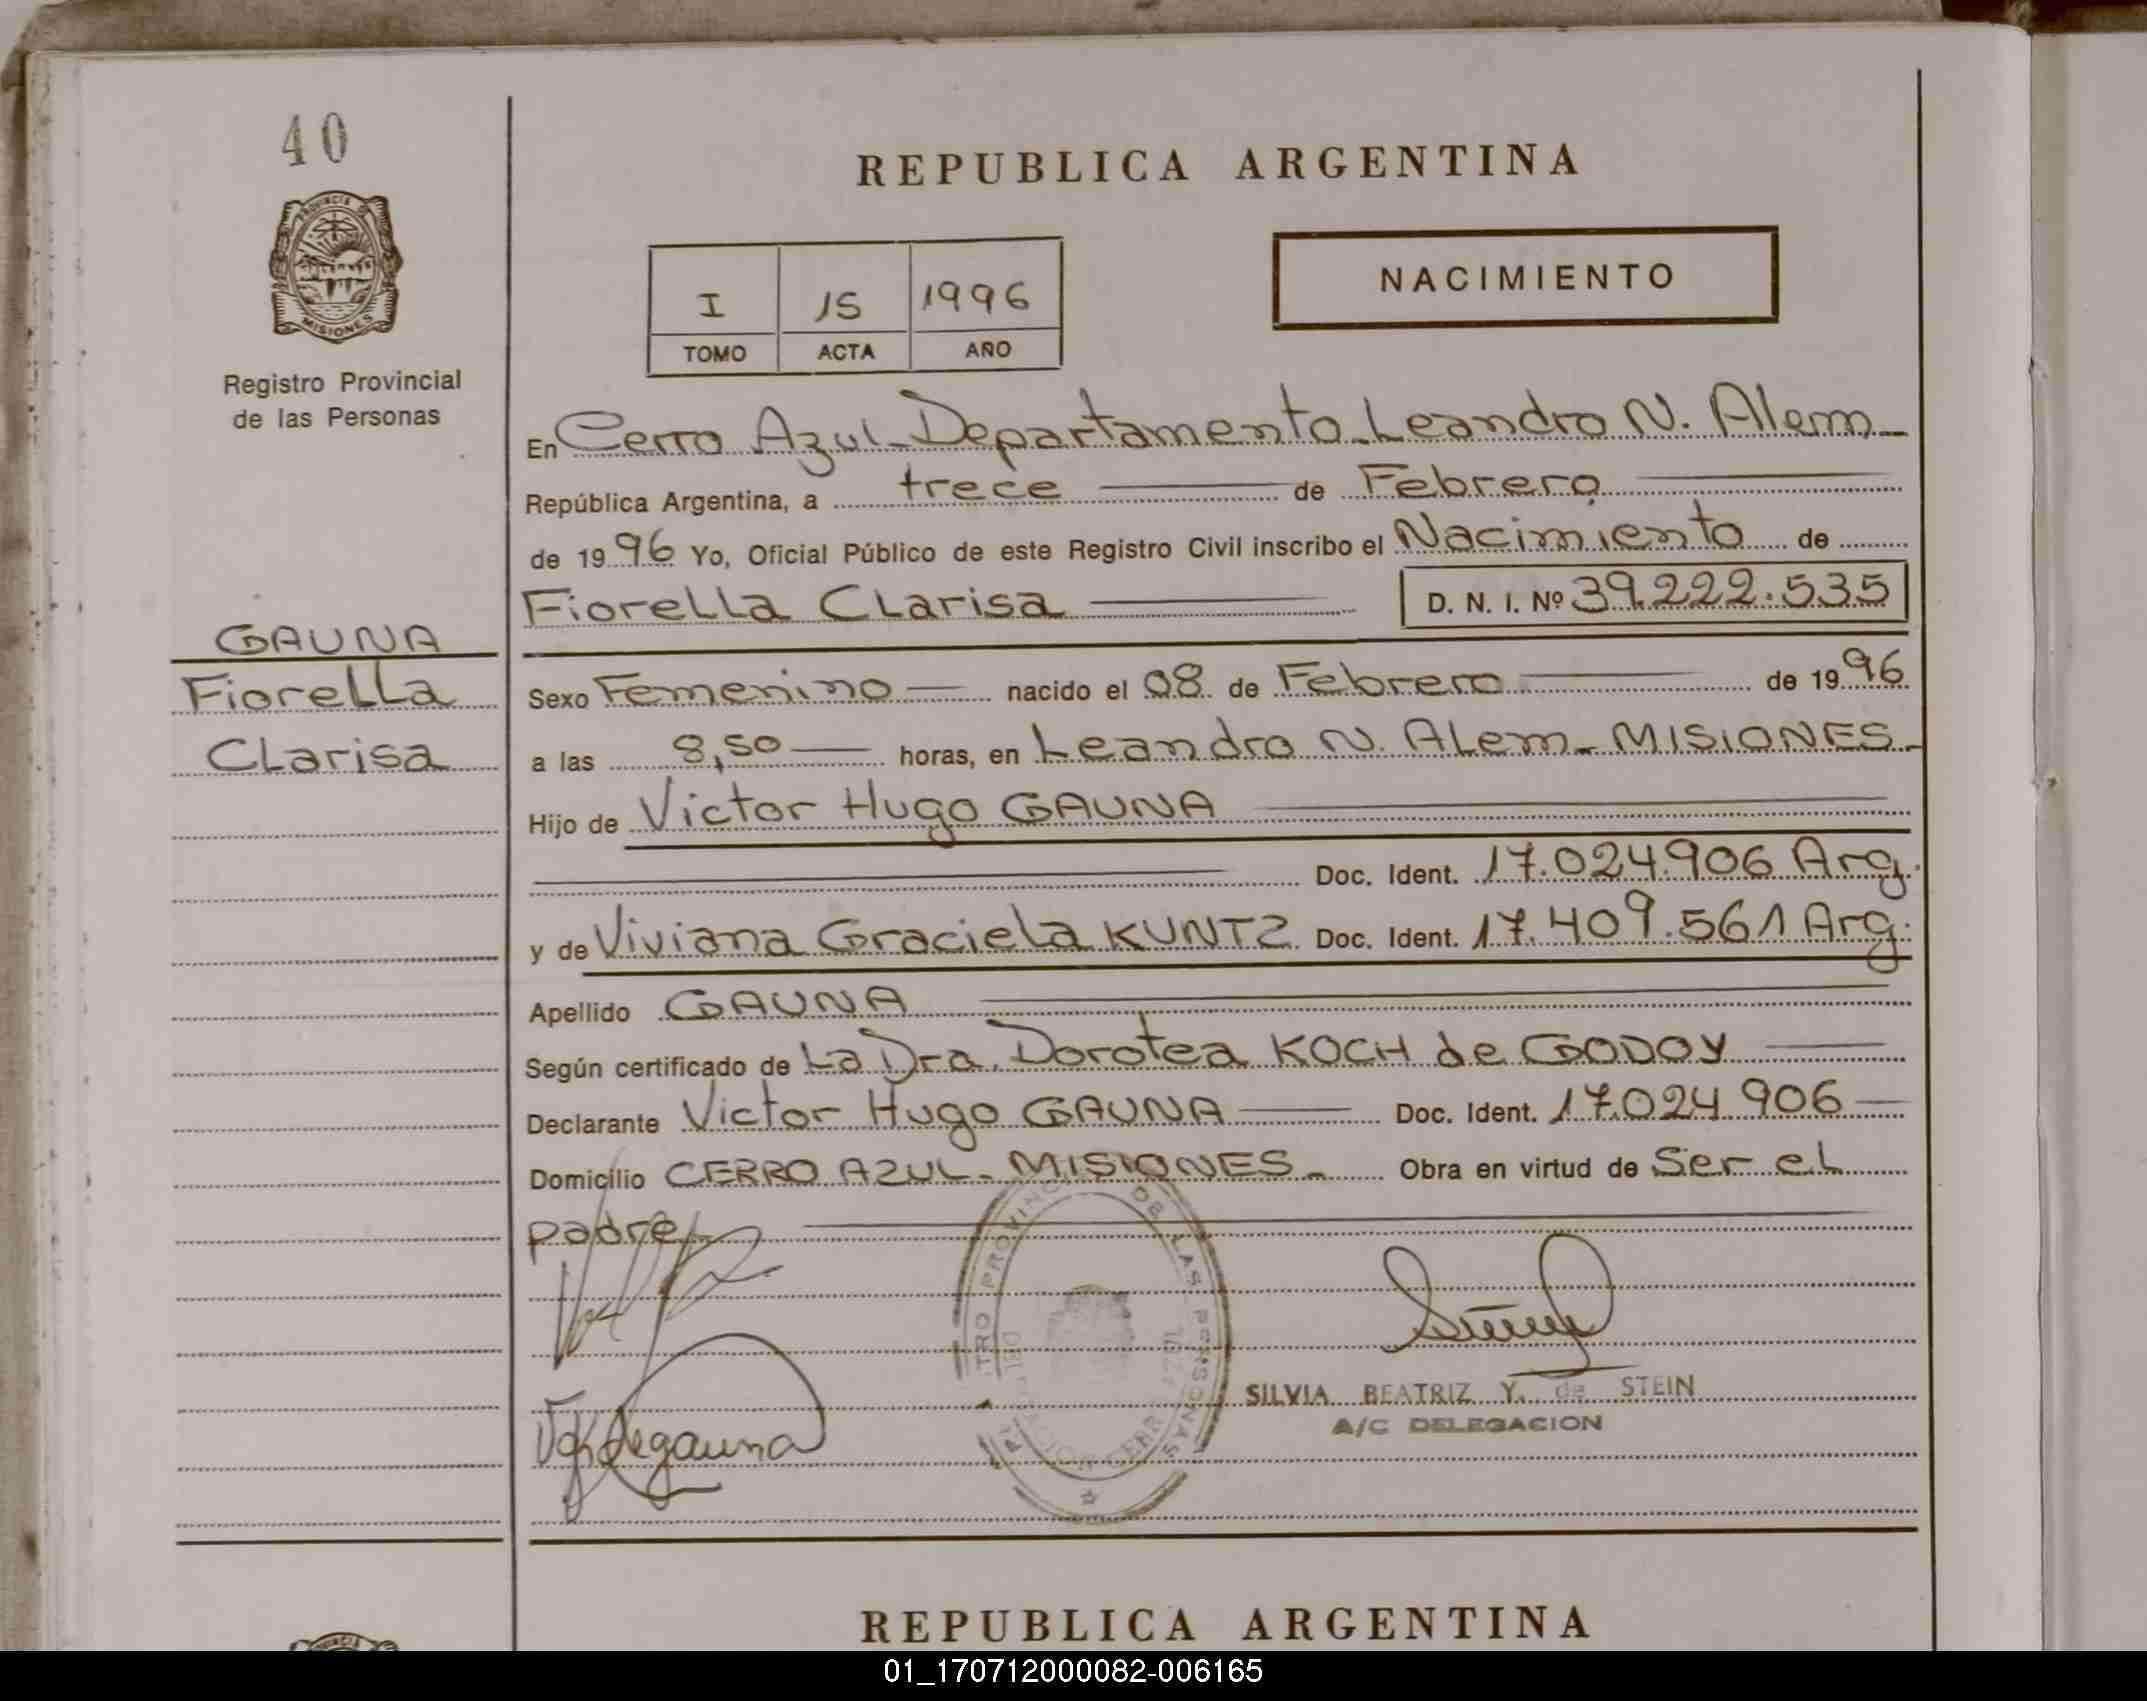 40
PROVINCIA DE
MISIONES
Registro Provincial
de las Personas
GAUNA
Fiorella
Clarisa
REPUBLICA ARGENTINA
I 15 1996
TOMO ACTA AÑO
NACIMIENTO
En Cerro Azul - Departamento Leandro N. Alem -
República Argentina, a trece de Febrero
de 1996 Yo, Oficial Público de este Registro Civil inscribo el Nacimiento de
Fiorella Clarisa D. N. I. Nº 39.222.535
Sexo Femenino nacido el 08 de Febrero de 1996
a las 8,50 horas, en Leandro N. Alem - MISIONES -
Hijo de Victor Hugo GAUNA
Doc. Ident. 17.024.906 Arg.
y de Viviana Graciela KUNTZ Doc. Ident. 17.409.561 Arg.
Apellido GAUNA
Según certificado de La Dra. Dorotea KOCH de GODOY
Declarante Victor Hugo GAUNA Doc. Ident. 17.024.906
Domicilio CERRO AZUL - MISIONES - Obra en virtud de Ser el
padre
DE LAS PERSONAS
SILVIA BEATRIZ Y. de STEIN
A/C DELEGACION
REPUBLICA ARGENTINA
01_170712000082-006165